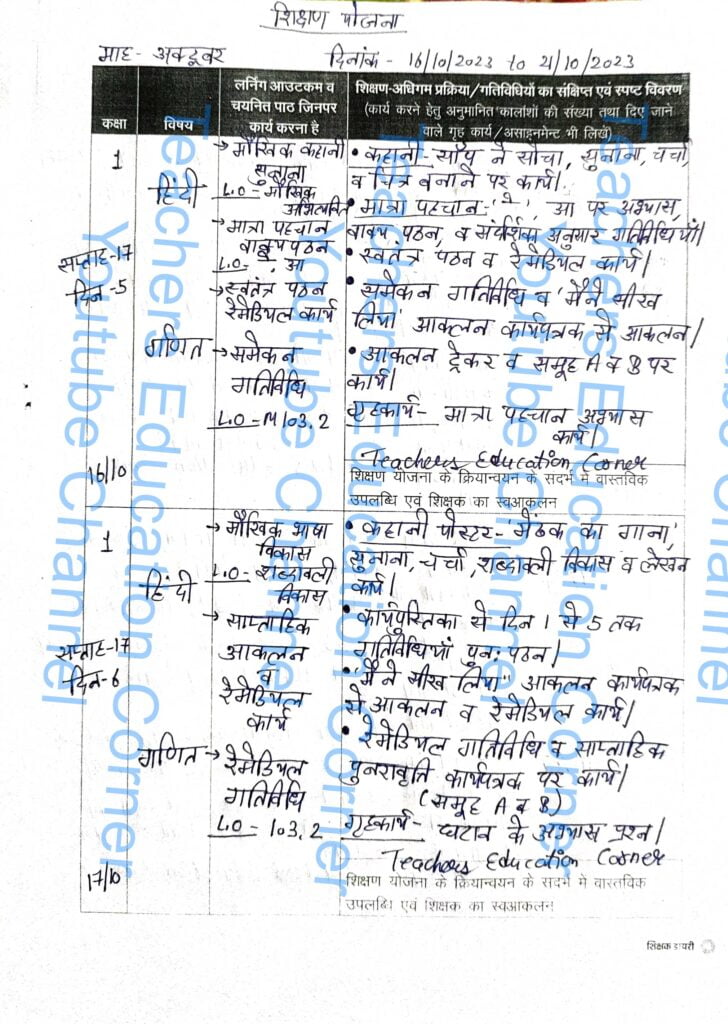 शिक्षण योजना
माह- अक्टूबर दिनांक - 16/10/2023 to 21/10/2023
कक्षा
विषय
लर्निंग आउटकम व
चयनित पाठ जिनपर
कार्य करना है
शिक्षण-अधिगम प्रक्रिया/गतिविधियों का संक्षिप्त एवं स्पष्ट विवरण
(कार्य करने हेतु अनुमानित कालांशों की संख्या तथा दिए जाने
वाले गृह कार्य/असाइनमेंट भी लिखें)
1
सप्ताह-17
दिन-5
16/10
हिंदी
गणित
→ मौखिक कहानी
सुनाना
L.O- मौखिक
→ मात्रा पहचान
वाक्य पठन
L.O- , आ
→ स्वतंत्र पठन
रेमेडियल कार्य
→ समेकन
गतिविधि
L.O - M103.2
• कहानी- साँप ने सोचा, सुनाना, चर्चा
व चित्र बनाने पर कार्य।
• मात्रा पहचान- 'े', आ पर अभ्यास,
वाक्य पठन, व संदर्शिका अनुसार गतिविधियाँ।
• स्वतंत्र पठन व रेमेडियल कार्य।
• समेकन गतिविधि व 'मैंने सीख
लिया' आकलन कार्यपत्रक से आकलन।
• आकलन ट्रेकर व समूह A व B पर
कार्य।
गृहकार्य- मात्रा पहचान अभ्यास
कार्य।
Teachers Education Corner
शिक्षण योजना के क्रियान्वयन के संदर्भ में वास्तविक
उपलब्धि एवं शिक्षक का स्वआकलन
1
सप्ताह-17
दिन-6
17/10
हिंदी
गणित
→ मौखिक भाषा
विकास
L.O- शब्दावली
विकास
→ साप्ताहिक
आकलन
व
रेमेडियल
कार्य
→ रेमेडियल
गतिविधि
L.O - 103.2
• कहानी पोस्टर- 'मेंढक का गाना',
सुनाना, चर्चा, शब्दावली विकास व लेखन
कार्य।
• कार्यपुस्तिका से दिन 1 से 5 तक
गतिविधियाँ पुनः पठन।
• "मैंने सीख लिया" आकलन कार्यपत्रक
से आकलन व रेमेडियल कार्य।
• रेमेडियल गतिविधि व साप्ताहिक
पुनरावृति कार्यपत्रक पर कार्य।
(समूह A व B)
गृहकार्य- घटाव के अभ्यास प्रश्न।
Teachers Education Corner
शिक्षण योजना के क्रियान्वयन के संदर्भ में वास्तविक
उपलब्धि एवं शिक्षक का स्वआकलन
शिक्षक डायरी
Teachers Education Corner
Youtube Channel
Teachers Education Corner
Youtube Channel
Teachers Education Corner
Youtube Channel